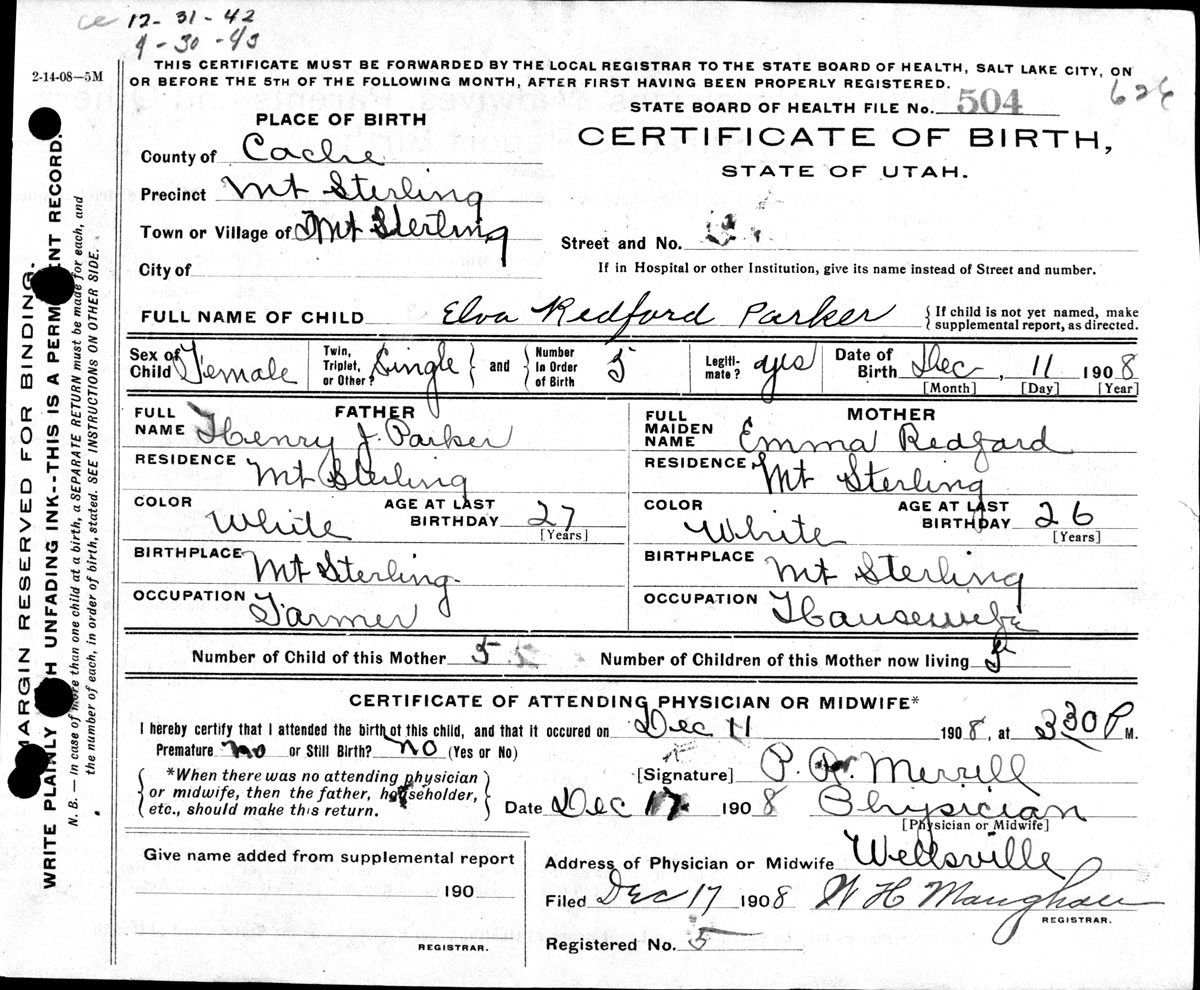 ce 12-31-42
4-30-43
2-14-08—5M
THIS CERTIFICATE MUST BE FORWARDED BY THE LOCAL REGISTRAR TO THE STATE BOARD OF HEALTH, SALT LAKE CITY, ON
OR BEFORE THE 5TH OF THE FOLLOWING MONTH, AFTER FIRST HAVING BEEN PROPERLY REGISTERED.
STATE BOARD OF HEALTH FILE No. 504
626
PLACE OF BIRTH
CERTIFICATE OF BIRTH,
STATE OF UTAH.
County of Cache
Precinct Mt Sterling
Town or Village of Mt Sterling
Street and No.
City of
If in Hospital or other Institution, give its name instead of Street and number.
FULL NAME OF CHILD Elva Redford Parker
{If child is not yet named, make
supplemental report, as directed.
Sex of Child Female
Twin, Triplet, or Other? Single } and { Number In Order of Birth 5
Legiti-mate? yes
Date of Birth Dec, 11 1908
[Month] [Day] [Year]
FATHER
FULL NAME Henry J. Parker
RESIDENCE Mt Sterling
COLOR White AGE AT LAST BIRTHDAY 27 [Years]
BIRTHPLACE Mt Sterling.
OCCUPATION Farmer
MOTHER
FULL MAIDEN NAME Emma Redford
RESIDENCE Mt Sterling
COLOR White AGE AT LAST BIRTHDAY 26 [Years]
BIRTHPLACE Mt Sterling
OCCUPATION Housewife
Number of Child of this Mother 5 Number of Children of this Mother now living 5
CERTIFICATE OF ATTENDING PHYSICIAN OR MIDWIFE*
I hereby certify that I attended the birth of this child, and that it occured on Dec 11 1908, at 330 P M.
Premature no or Still Birth? no (Yes or No)
{*When there was no attending physician
or midwife, then the father, householder,
etc., should make this return.}
[Signature] P. R. Merrill
Date Dec 17 1908 Physician
[Physician or Midwife]
Give name added from supplemental report
190
REGISTRAR.
Address of Physician or Midwife Wellsville
Filed Dec 17 1908 W H Maughan
REGISTRAR.
Registered No. 5
MARGIN RESERVED FOR BINDING.
WRITE PLAINLY WITH UNFADING INK--THIS IS A PERMANENT RECORD.
N. B. — In case of more than one child at a birth, a SEPARATE RETURN must be made for each, and
the number of each, in order of birth, stated. SEE INSTRUCTIONS ON OTHER SIDE.